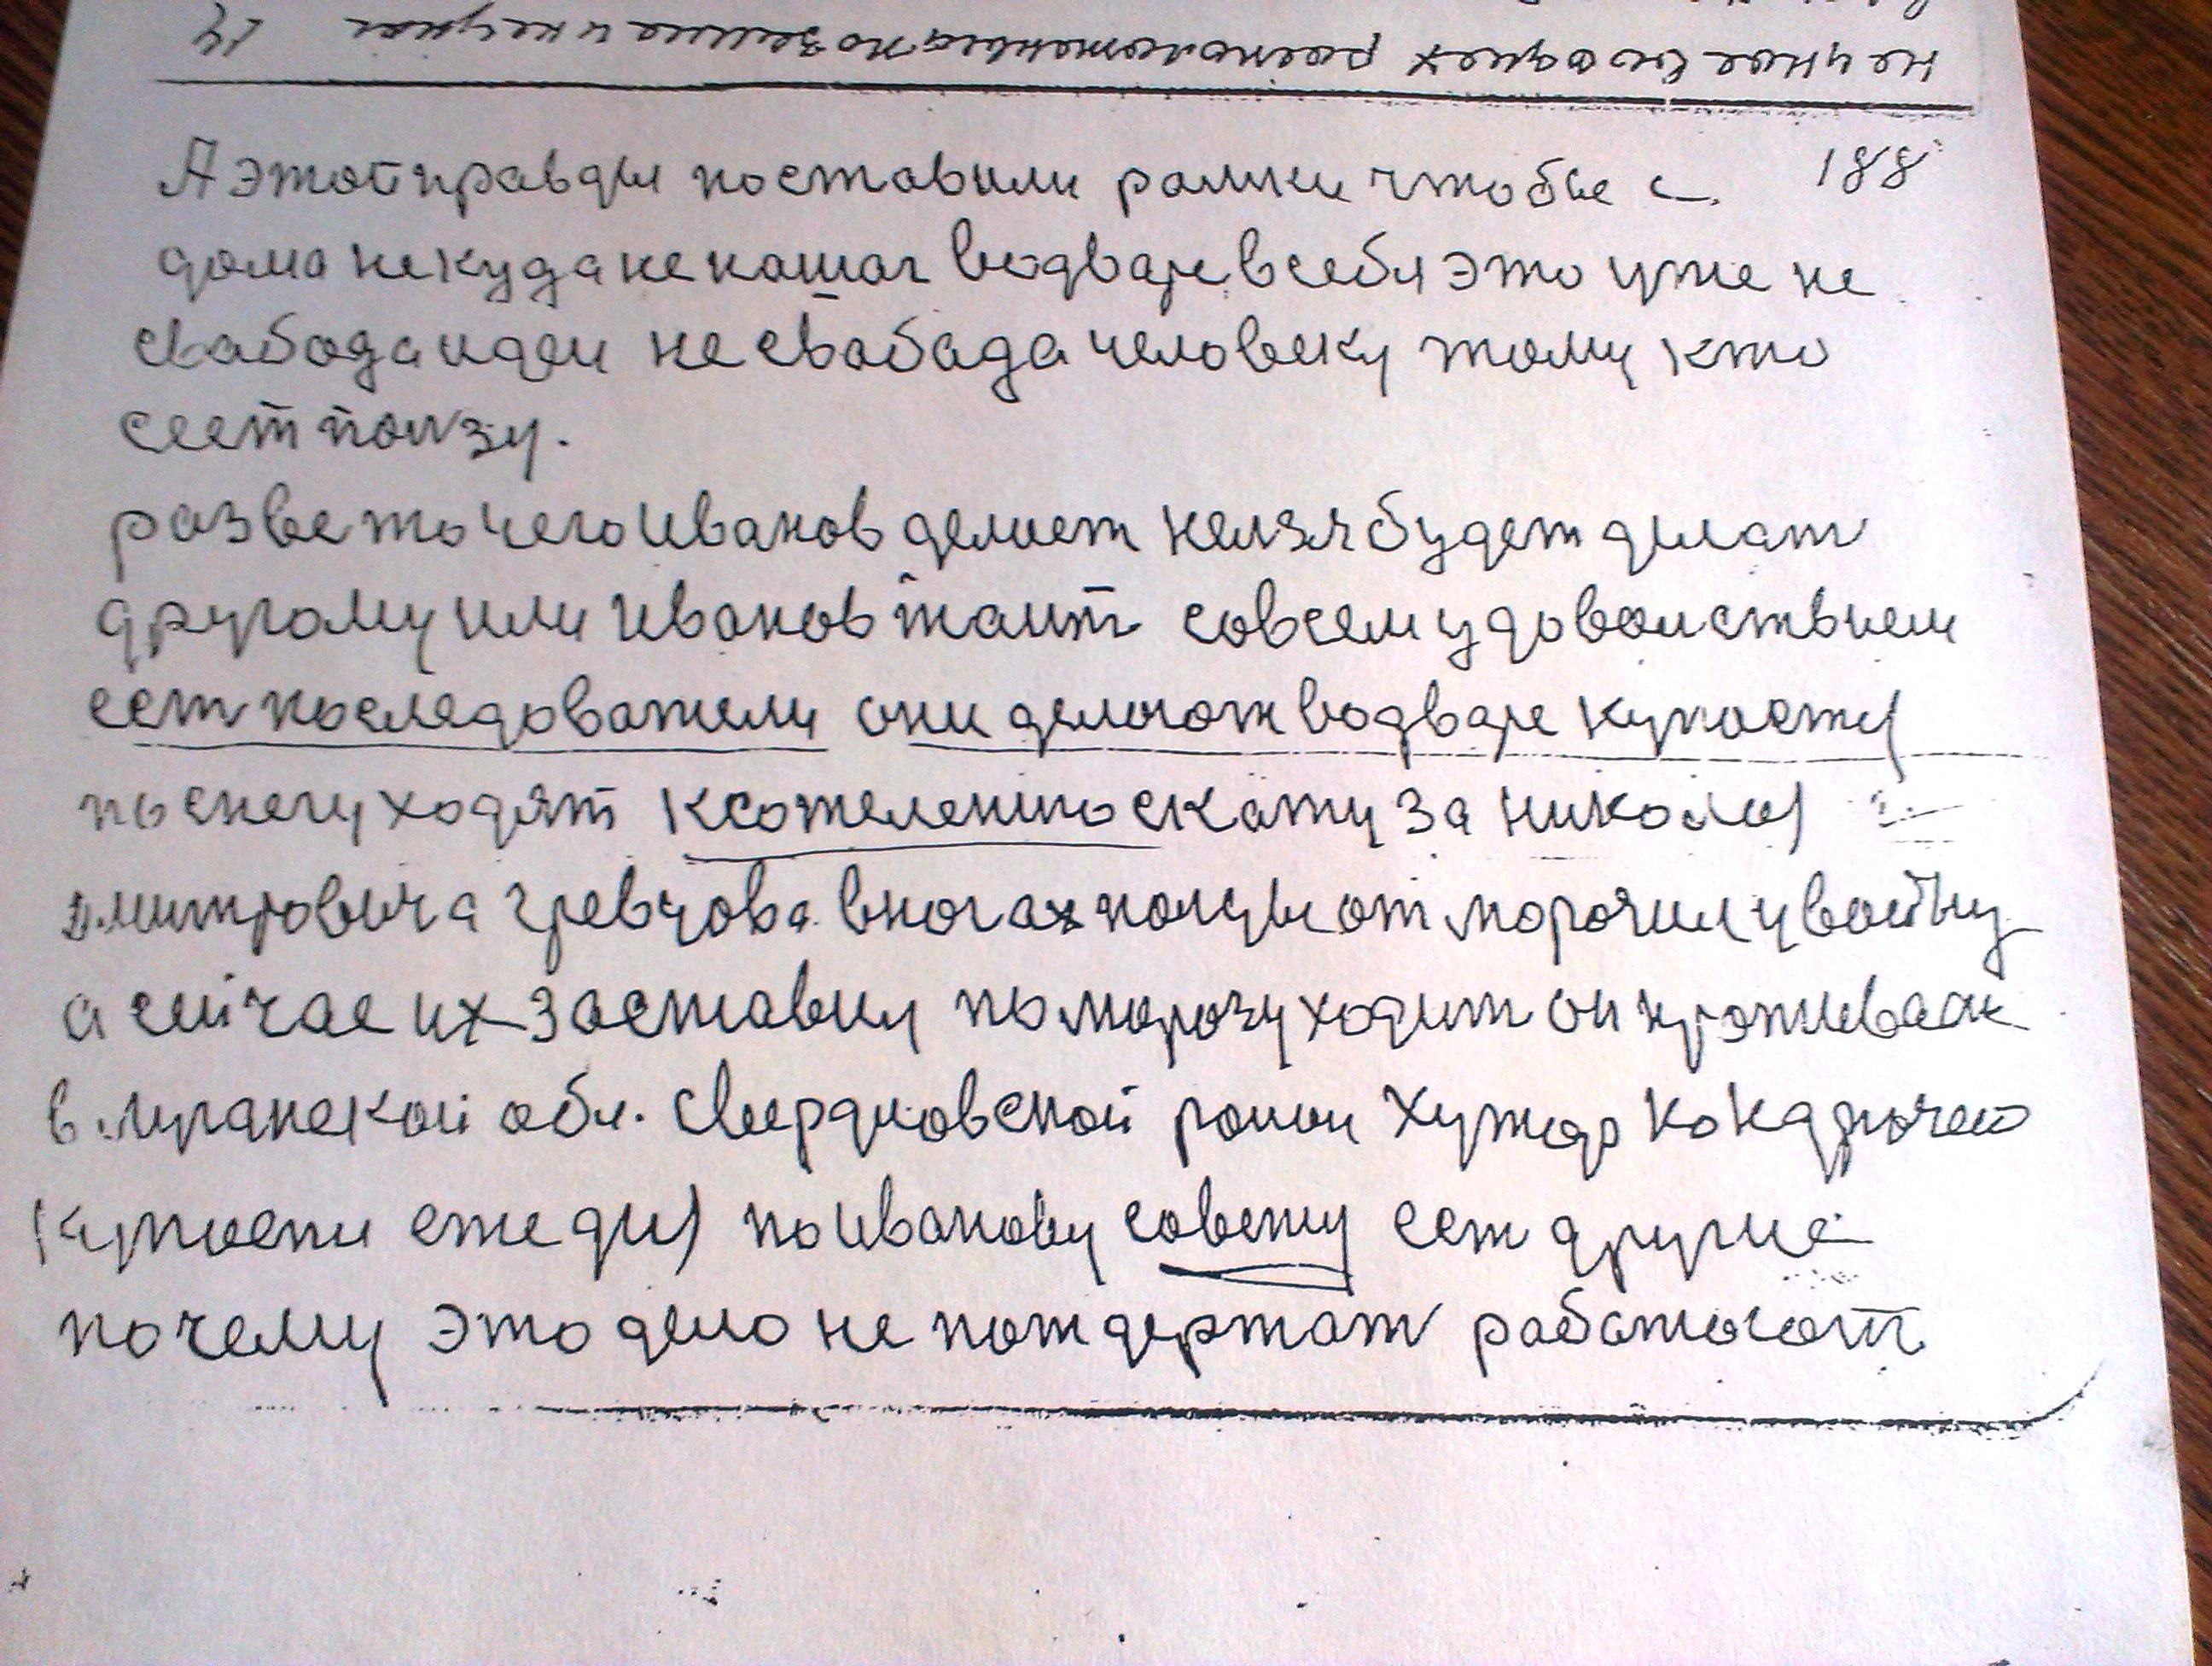 188
А этой правды поставили рамки чтобы с
дома некуда не кашаг водваре в себя это уже не
свабода идеи не свабада человеку тому кто
сеет ползу.
разве то чего Иванов делает нелзя будет делат
другому или Иванов таит совсем удоволствием
ест последователи они делают водваре купаетца
по снегу ходят ксожелению скажу за Николая
Дмитровича в ногах палцы отморожил у войну
а сейчас их заставил по морозу ходит он проживает
в луганской обл. свердловской район Хутор
по Иванову совету ест другие
почему это дело не потдержат работают